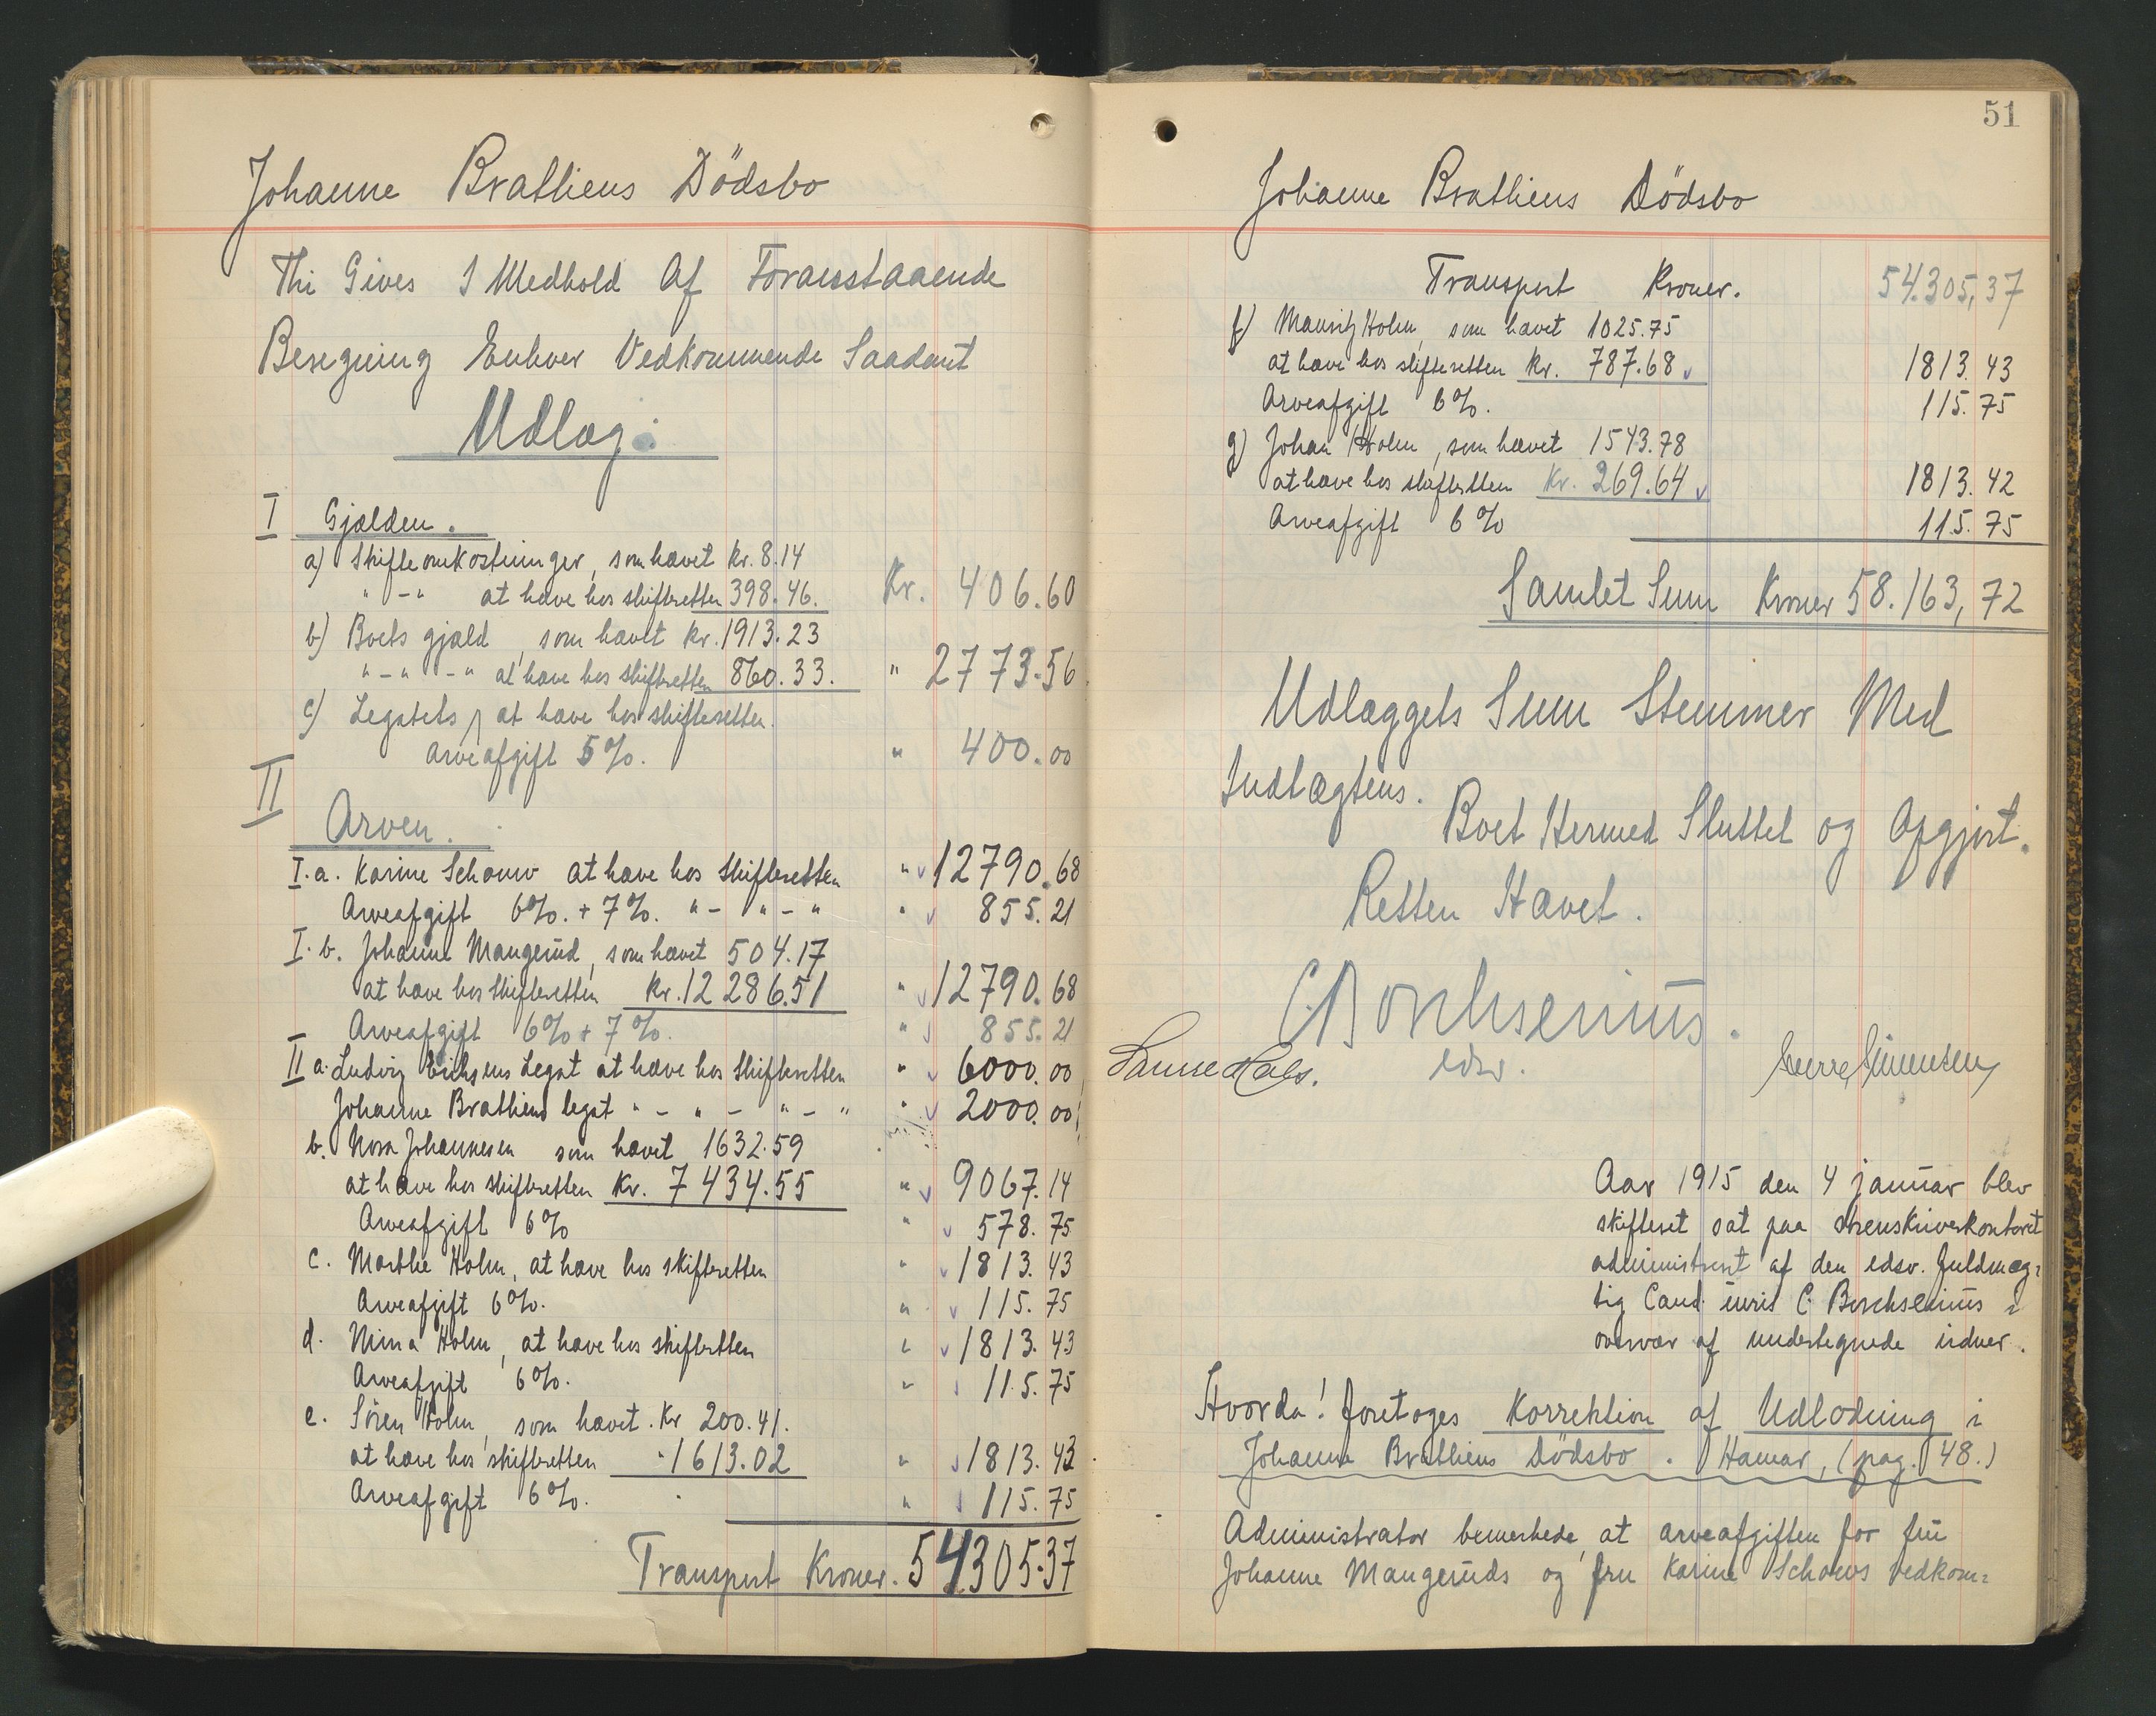 Johanne Bratliens Dödsbo
Thi Gives I Medhold Af Foranstaaende
Beregning Enhver Vedkommende Saadant
Udlæg:
I Gjælden.
a) Skifteomkostninger, som hævet kr. 8.14
" - " at hæve hos skifteretten 398.46. Kr. 406.60
b) Boets gjæld, som hævet kr. 1913.23
" - " - " at hæve hos skifteretten 860.33. " 2773.56
c) Legatets, at hæve hos skifteretten.
Arveafgift 5%. " 400.00
II
Arven.
I.a. Karine Schouw at hæve hos Skifteretten " 12790.68
Arveafgift 6%. + 7%. " - " - " " 855.21
I.b. Johanne Mangerud, som hævet 504.17
at hæve hos skifteretten kr. 12286.51 " 12790.68
Arveafgift 6% + 7%. " 855.21
II a. Ludvig Erichsens Legat at hæve hos Skifteretten " 6000.00
Johanne Bratliens legat " - " - " - " " 2000.00
b. Nora Johannesen som hævet 1632.59
at hæve hos skifteretten Kr. 7434.55 " 9067.14
Arveafgift 6% " 578.75
c. Marthe Holm, at hæve hos skifteretten " 1813.43
Arveafgift 6%. " 115.75
d. Nina Holm, at hæve hos skifteretten " 1813.43
Arveafgift 6%. " 115.75
e. Sören Holm, som hævet. Kr 200.41.
at hæve hos skifteretten " 1613.02 " 1813.43
Arveafgift 6%. " 115.75
Transport Kroner. 54305.37
51
Johanne Bratliens Dödsbo
Transport Kroner. 54.305,37
f) Mauritz Holm, som hævet 1025.75
at hæve hos skifteretten kr. 787.68 1813.43
Arveafgift 6%. 115.75
g) Johan Holm, som hævet 1543.78
at hæve hos skifteretten Kr. 269.64 1813.42
Arveafgift 6% 115.75
Samlet Sum Kroner 58.163,72
Udlæggets Sum Stemmer Med
Indtægtens.
Boet Hermed Sluttet og Opgjort.
Retten Hævet.
C. Borchsenius.
edsv.
Aar 1915 den 4 januar blev
skifteret sat paa sorenskriverkontoret
administreret af den edsv. fuldmæg=
tig Cand. iuris C. Borchsenius i
overvær af undertegnede vidner.
Hvorda! foretoges Korrektion af Udlodning i
Johanne Bratliens Dödsbo. Hamar, (pag. 48.)
Administrator bemerkede, at arveafgiften for fru
Johanne Mangeruds og fru Karine Schouws Vedkom=